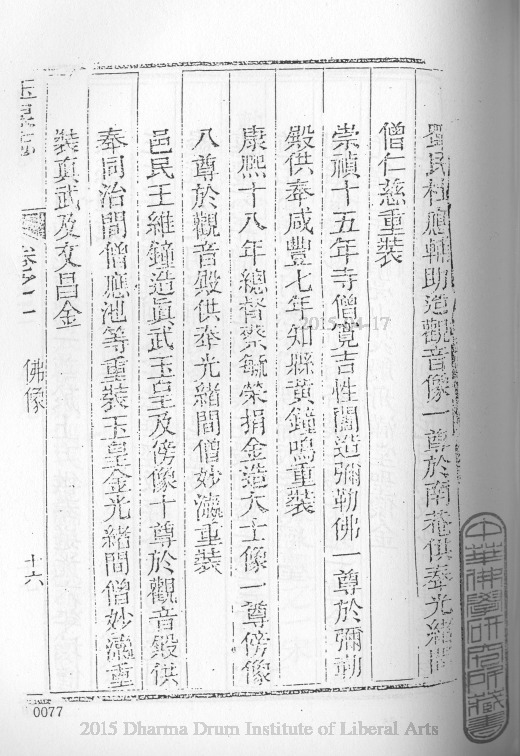 民杜應輔助造觀音像一尊於南菴供奉光緒間
僧仁慈重裝
崇禎十五年寺僧寬吉性闊造彌勒佛一尊於彌勒
殿供奉咸豐七年知縣黃鐘鳴重裝
康熙十八年總督蔡毓榮捐金造大士像一尊傍像
八尊於觀音殿供奉光緒間僧妙瀛重裝
邑民王維鐘造眞武玉皇及傍像十尊於觀音殿供
奉同治間僧應池等重裝玉皇金光緒間僧妙瀛重
裝眞武及文昌金
玉泉志
卷之二
佛像
十六
0077
2015-04-17
中華佛學研究所藏書
2015 Dharma Drum Institute of Liberal Arts